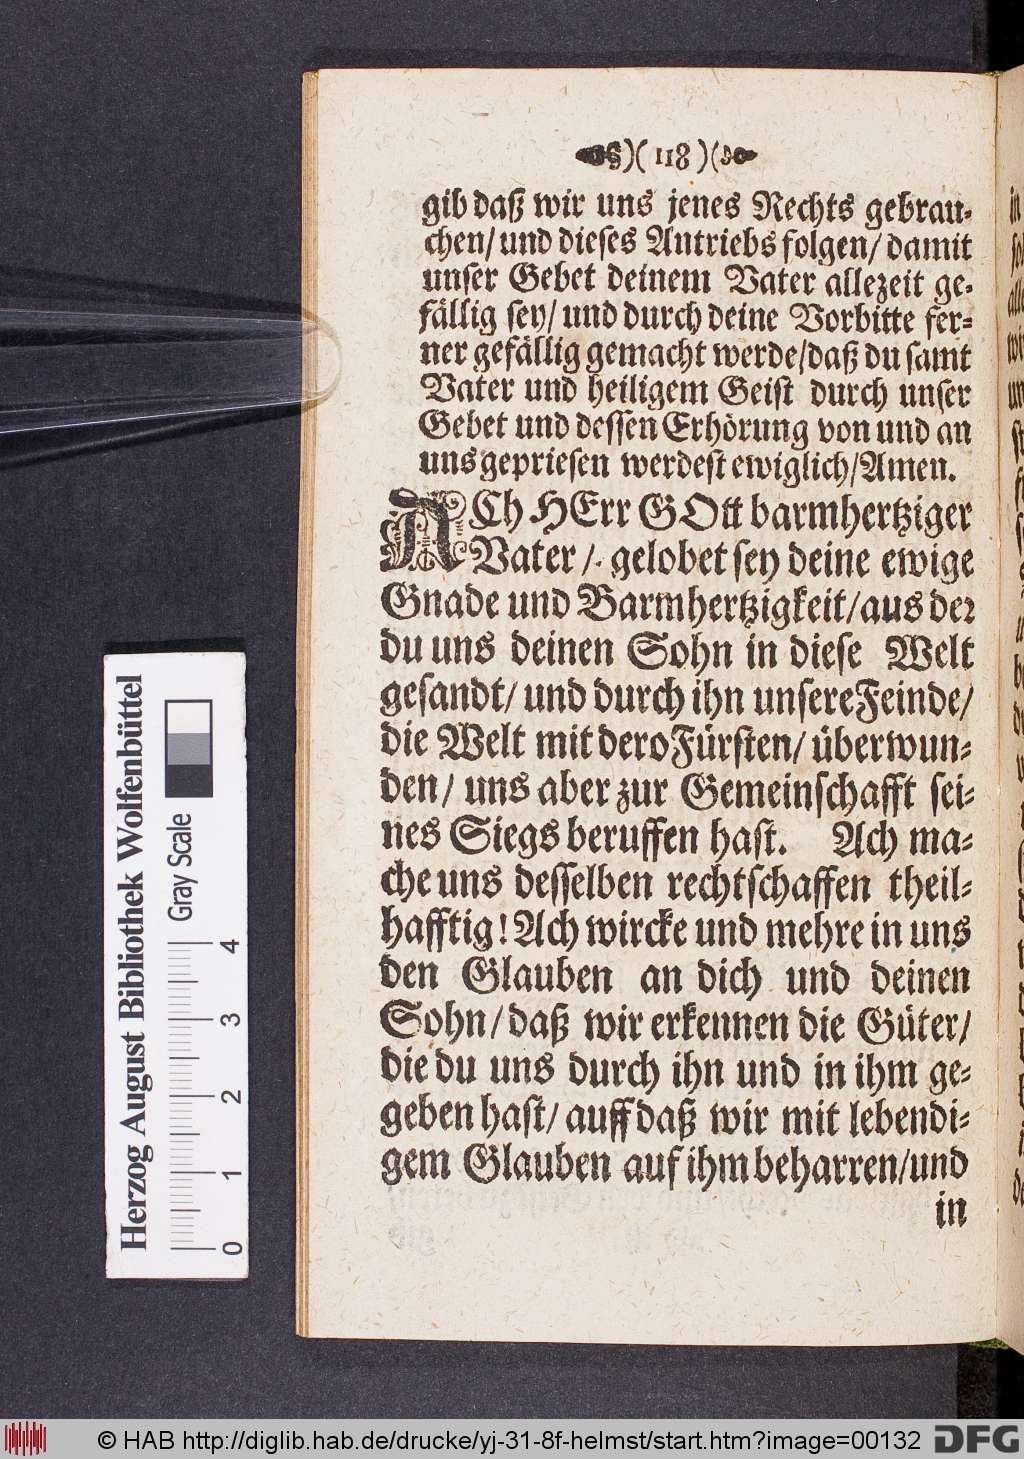 )( 118 )(
gib daß wir uns jenes Rechts gebrau-
chen/ und dieses Antriebs folgen/ damit
unser Gebet deinem Vater allezeit ge-
fällig sey/ und durch deine Vorbitte fer-
ner gefällig gemacht werde/daß du samt
Vater und heiligem Geist durch unser
Gebet und dessen Erhörung von und an
uns gepriesen werdest ewiglich/Amen.
ACh HErr GOtt barmhertziger
Vater / gelobet sey deine ewige
Gnade und Barmhertzigkeit/aus der
du uns deinen Sohn in diese Welt
gesandt/ und durch ihn unsere Feinde/
die Welt mit dero Fürsten/ überwun-
den/ uns aber zur Gemeinschafft sei-
nes Siegs beruffen hast. Ach ma-
che uns desselben rechtschaffen theil-
hafftig! Ach wircke und mehre in uns
den Glauben an dich und deinen
Sohn/ daß wir erkennen die Güter/
die du uns durch ihn und in ihm ge-
geben hast/ auff daß wir mit lebendi-
gem Glauben auf ihm beharren/und
in
Herzog August Bibliothek Wolfenbüttel
Gray Scale
0 1 2 3 4
© HAB http://diglib.hab.de/drucke/yj-31-8f-helmst/start.htm?image=00132
DFG